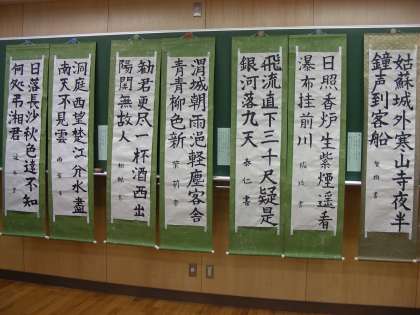 姑蘇城外寒山寺夜半
鐘声到客船
日照香炉生紫煙遥看
瀑布挂前川
飛流直下三千尺疑是
銀河落九天
渭城朝雨浥軽塵客舎
青青柳色新
勧君更尽一杯酒西出
陽関無故人
洞庭西望楚江分水盡
南天不見雲
日落長沙秋色遠不知
何処弔湘君